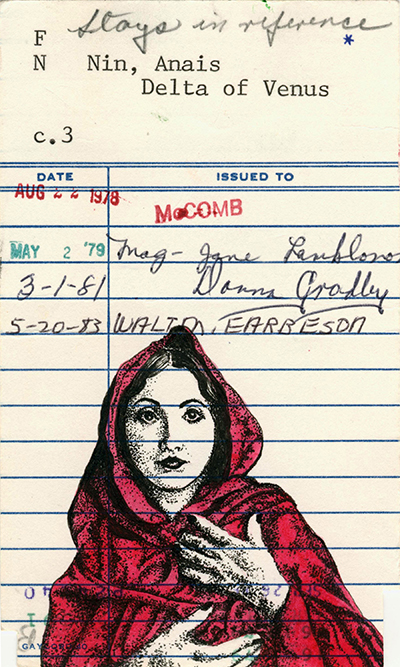 Stays in reference *
F
N Nin, Anais
Delta of Venus
c.3
DATE ISSUED TO
AUG 22 1978 McCOMB
MAY 2 '79 Mag - Jane
3-1-81 Donna Gradley
5-20-83 WALTON,